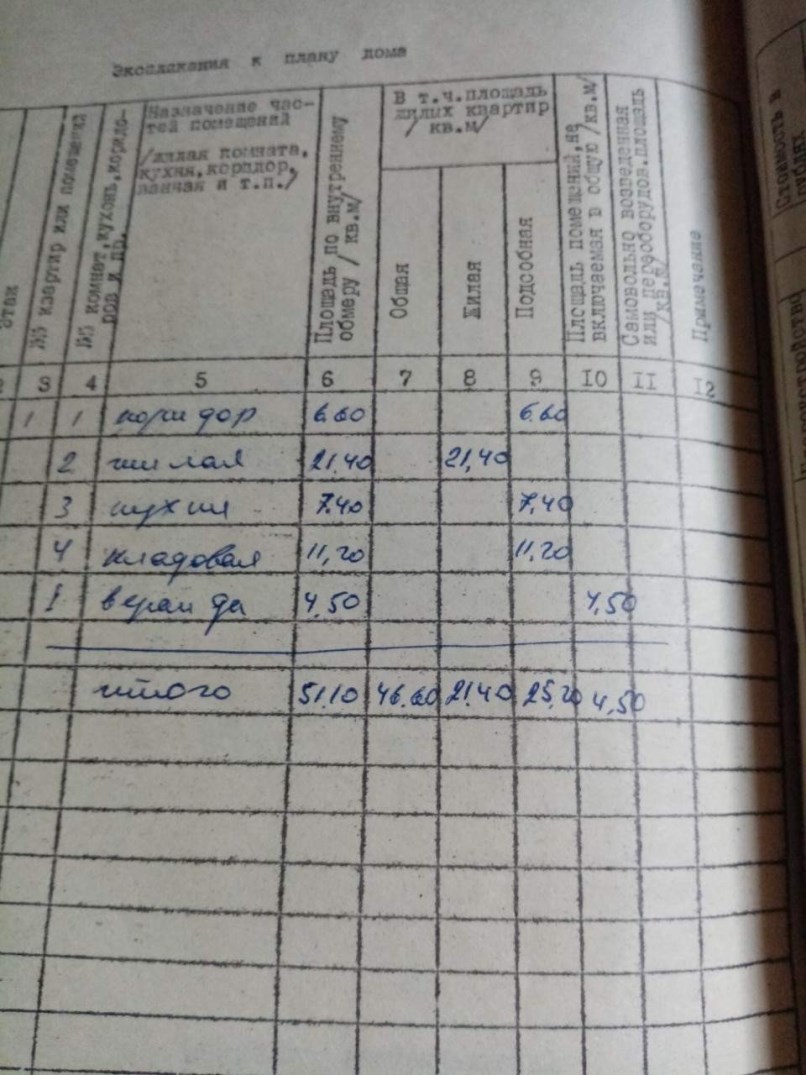 Экспликация к плану дома
Этаж
№№ квартир или помещений
№№ комнат, кухонь, коридо-
ров и пр.
Назначение час-
тей помещений
/жилая комната,
кухня, коридор,
ванная и т.п./
Площадь по внутреннему
обмеру / кв.м/
В т.ч.площадь
жилых квартир
/ кв.м/
Общая
Жилая
Подсобная
Площадь помещений, не
включаемая в общую /кв.м/
Самовольно возведенная
или переоборудов. площадь
/кв.м/
Примечание
3 4 5 6 7 8 9 10 11 12
1 1 коридор 6.60 6.60
2 жилая 21.40 21,40
3 кухня 7.40 7,40
4 кладовая 11,20 11.20
I веранда 4,50 4,50
итого 51.10 46.60 21.40 25,20 4,50
Стоимость в